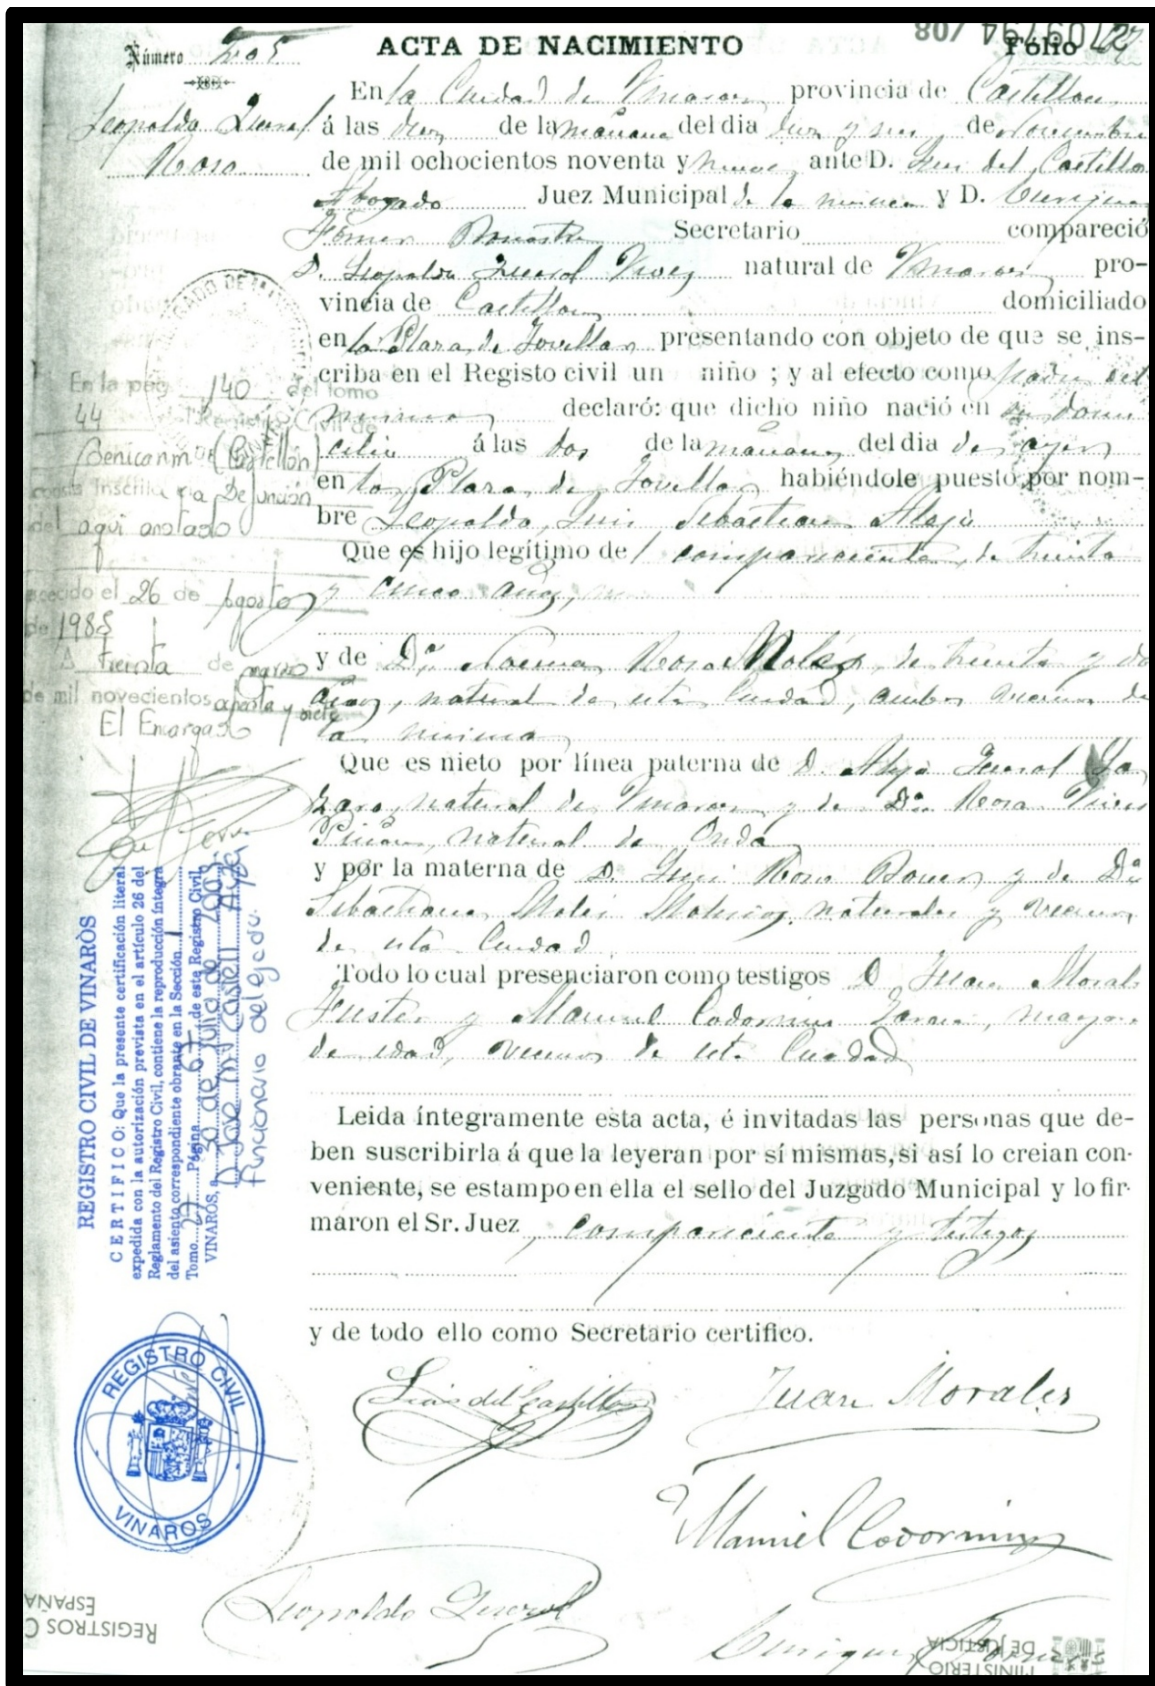 Número 205
ACTA DE NACIMIENTO
Folio
Leopoldo Querol
Roso
En la Ciudad de Vinaroz provincia de Castellon
á las diez de la mañana del dia diez y seis de Noviembre
de mil ochocientos noventa y nueve ante D. Luis del Castillo
Abogado Juez Municipal de la misma y D. Enrique
Fomer Secretario compareció
D. Leopoldo Querol Vives natural de Vinaroz pro-
vincia de Castellon domiciliado
en la Plaza de Jovellar presentando con objeto de que se ins-
criba en el Registo civil un niño ; y al efecto como padre del
mismo declaró: que dicho niño nació en su domi
cilio á las dos de la mañana del dia de ayer
en la Plaza de Jovellar habiéndole puesto por nom-
bre Leopoldo, Luis Sebastian Alejo
Que es hijo legítimo del compareciente, de treinta
y cinco años,
y de Dª Roso Molés, de treinta y do
años, natural de esta Ciudad, ambos vecinos de
la misma
Que es nieto por línea paterna de D. Alejo Querol La
zaro, natural de Vinaroz y de Dª Rosa Vives
natural de Onda
y por la materna de D. Luis Roso y de Dª
Sebastiana naturales y vecinos
de esta Ciudad
Todo lo cual presenciaron como testigos D Juan Morales
Fuster y Manuel Codorniu mayores
de edad, vecinos de esta Ciudad
Leida íntegramente esta acta, é invitadas las personas que de-
ben suscribirla á que la leyeran por sí mismas, si así lo creian con-
veniente, se estampo en ella el sello del Juzgado Municipal y lo fir-
maron el Sr. Juez, compareciente y testigos
y de todo ello como Secretario certifico.
Luis del Castillo
Juan Morales
Manuel Codorniu
Leopoldo Querol
Enrique
En la pág 140 del tomo
44 del Registro Civil de
Benicasim (Castellón)
consta inscrita la Defunción
del aquí anotado
fallecido el 26 de Agosto
de 1985
A treinta de marzo
de mil novecientos ochenta y siete
El Encargado
REGISTRO CIVIL DE VINARÒS
CERTIFICO: Que la presente certificación literal
expedida con la autorización prevista en el artículo 26 del
Reglamento del Registro Civil, contiene la reproducción íntegra
del asiento correspondiente obrante en la Sección 1
Tomo 27 Página 67 de este Registro Civil.
VINARÒS, 30 de Julio de 2003.
D. José Mª Casell
funcionario delegado.
REGISTRO CIVIL
VINARÒS
REGISTROS C
ESPAÑA
MINISTERIO
DE JUSTICIA